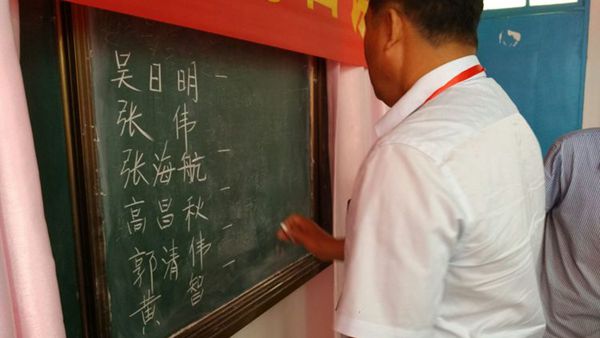 吴日明 一
张 伟
张海航 一
高昌秋 一
郭清伟 一
黄 智 一